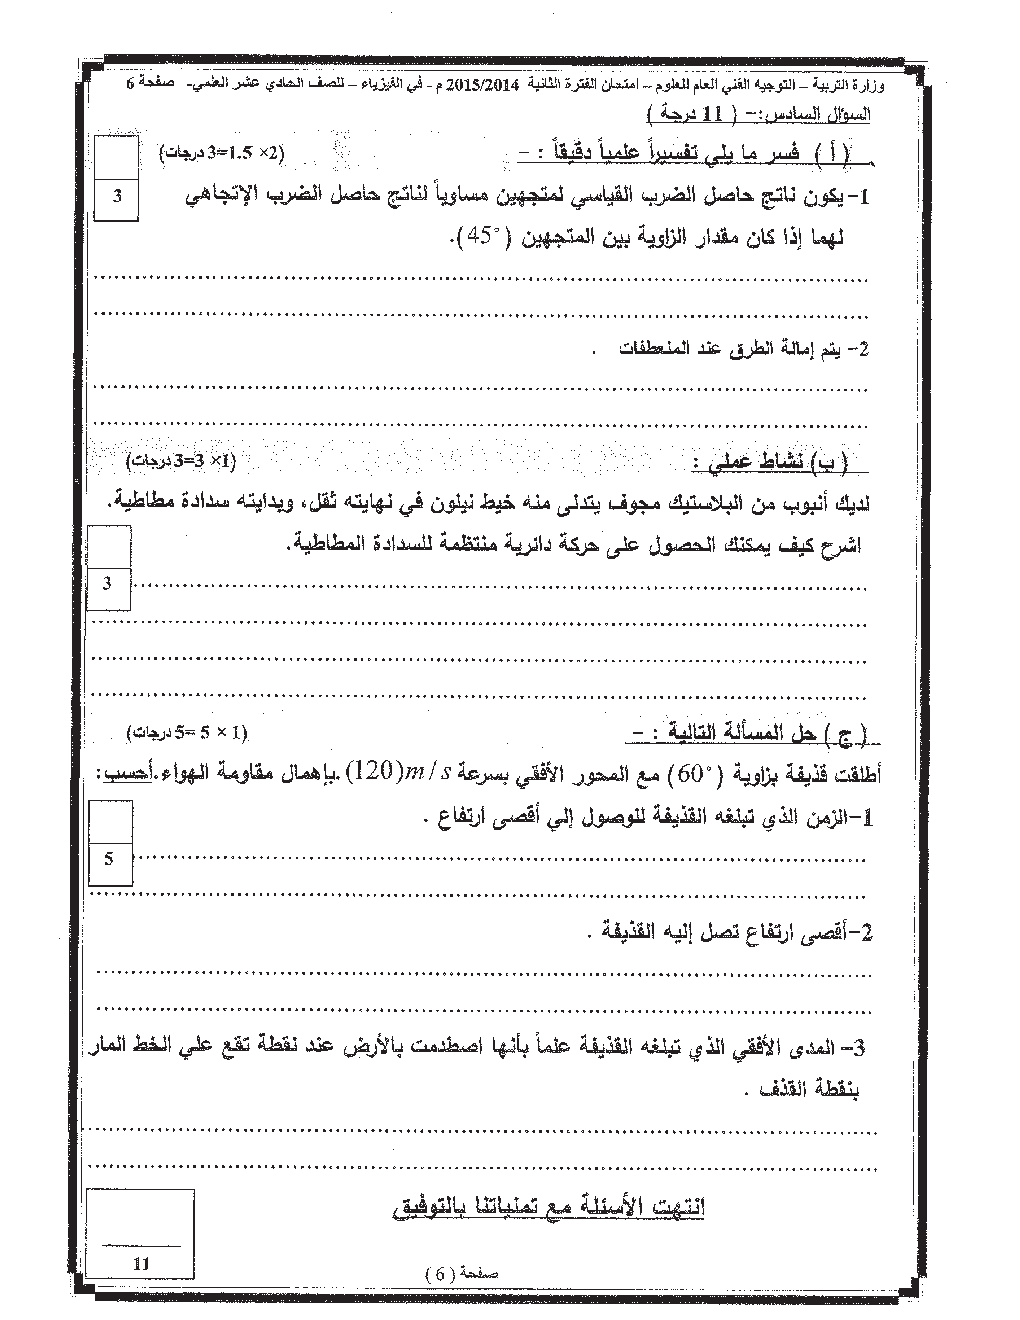 وزارة التربية – التوجيه الفني العام للعلوم – امتحان الفترة الثانية 2015/2014 م - في الفيزياء – للصف الحادي عشر العلمي- صفحة 6
السؤال السادس:- ( 11 درجة )
( أ ) فسر ما يلي تفسيراً علمياً دقيقاً : – (2× 1.5=3 درجات)
3
1-يكون ناتج حاصل الضرب القياسي لمتجهين مساوياً لناتج حاصل الضرب الإتجاهي
لهما إذا كان مقدار الزاوية بين المتجهين (45°).
2- يتم إمالة الطرق عند المنعطفات .
( ب) نشاط عملي : (1× 3=3 درجات)
لديك أنبوب من البلاستيك مجوف يتدلى منه خيط نيلون في نهايته ثقل، وبدايته سدادة مطاطية.
اشرح كيف يمكنك الحصول على حركة دائرية منتظمة للسدادة المطاطية.
3
( ج ) حل المسألة التالية : – (1 × 5 =5 درجات)
أطلقت قذيفة بزاوية (60°) مع المحور الأفقي بسرعة (120)m/s .بإهمال مقاومة الهواء.أحسب:
1-الزمن الذي تبلغه القذيفة للوصول إلي أقصى ارتفاع .
5
2-أقصى ارتفاع تصل إليه القذيفة .
3- المدى الأفقي الذي تبلغه القذيفة علماً بأنها اصطدمت بالأرض عند نقطة تقع علي الخط المار
بنقطة القذف .
انتهت الأسئلة مع تمنياتنا بالتوفيق
11
صفحة ( 6 )